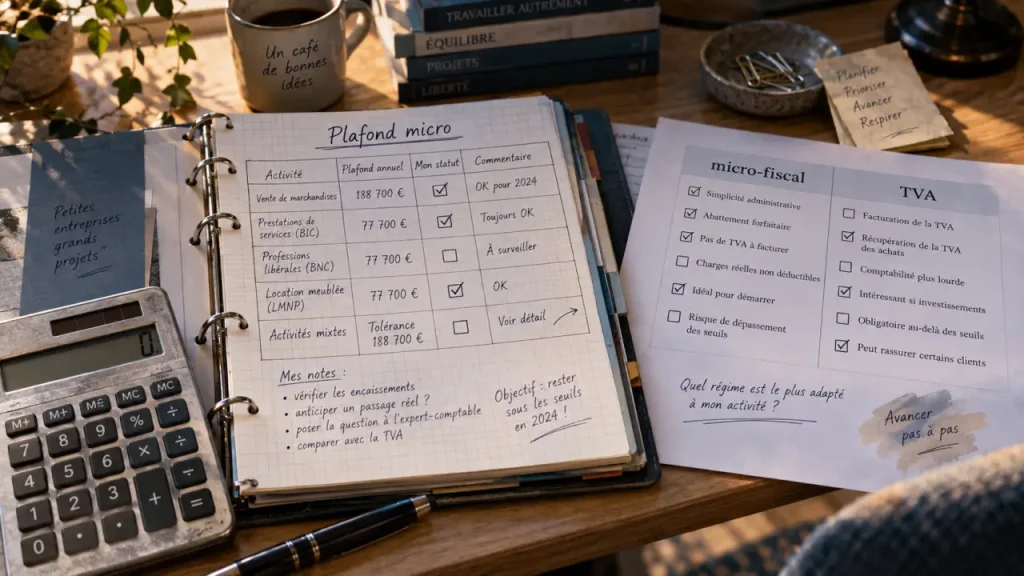 Un café
de bonnes
idées
TRAVAILLER AUTREMENT
ÉQUILIBRE
PROJETS
LIBERTÉ
Planifier
Prioriser
Avancer
Respirer
Petites
entreprises
grands
projets"
Plafond micro
Activité Plafond annuel Mon statut Commentaire
Vente de marchandises 188 700 € ☑ OK pour 2024
Prestations de
services (BIC) 77 700 € ☑ Toujours OK
Professions
libérales (BNC) 77 700 € ☐ À surveiller
Location meublée
(LMNP) 77 700 € ☑ OK
Activités mixtes Tolérance
188 700 € ☐ Voir détail →
Mes notes :
• vérifier les encaissements
• anticiper un passage réel ?
• poser la question à l'expert-comptable
• comparer avec la TVA
Objectif : rester
sous les seuils
en 2024 !
micro-fiscal
☑ Simplicité administrative
☑ Abattement forfaitaire
☑ Pas de TVA à facturer
☐ Charges réelles non déductibles
☑ Idéal pour démarrer
☐ Risque de dépassement
des seuils
TVA
☐ Facturation de la TVA
☑ Récupération de la TVA
des achats
☐ Comptabilité plus lourde
☑ Intéressant si investissements
☐ Obligatoire au-delà des seuils
☑ Peut rassurer certains clients
Quel régime est le plus adapté
à mon activité ?
Avancer
pas à pas
0
M+ M+ MC MC
7 8 9 % ÷
4 5 6 × ÷
1 2 3 + ÷
0 · · =